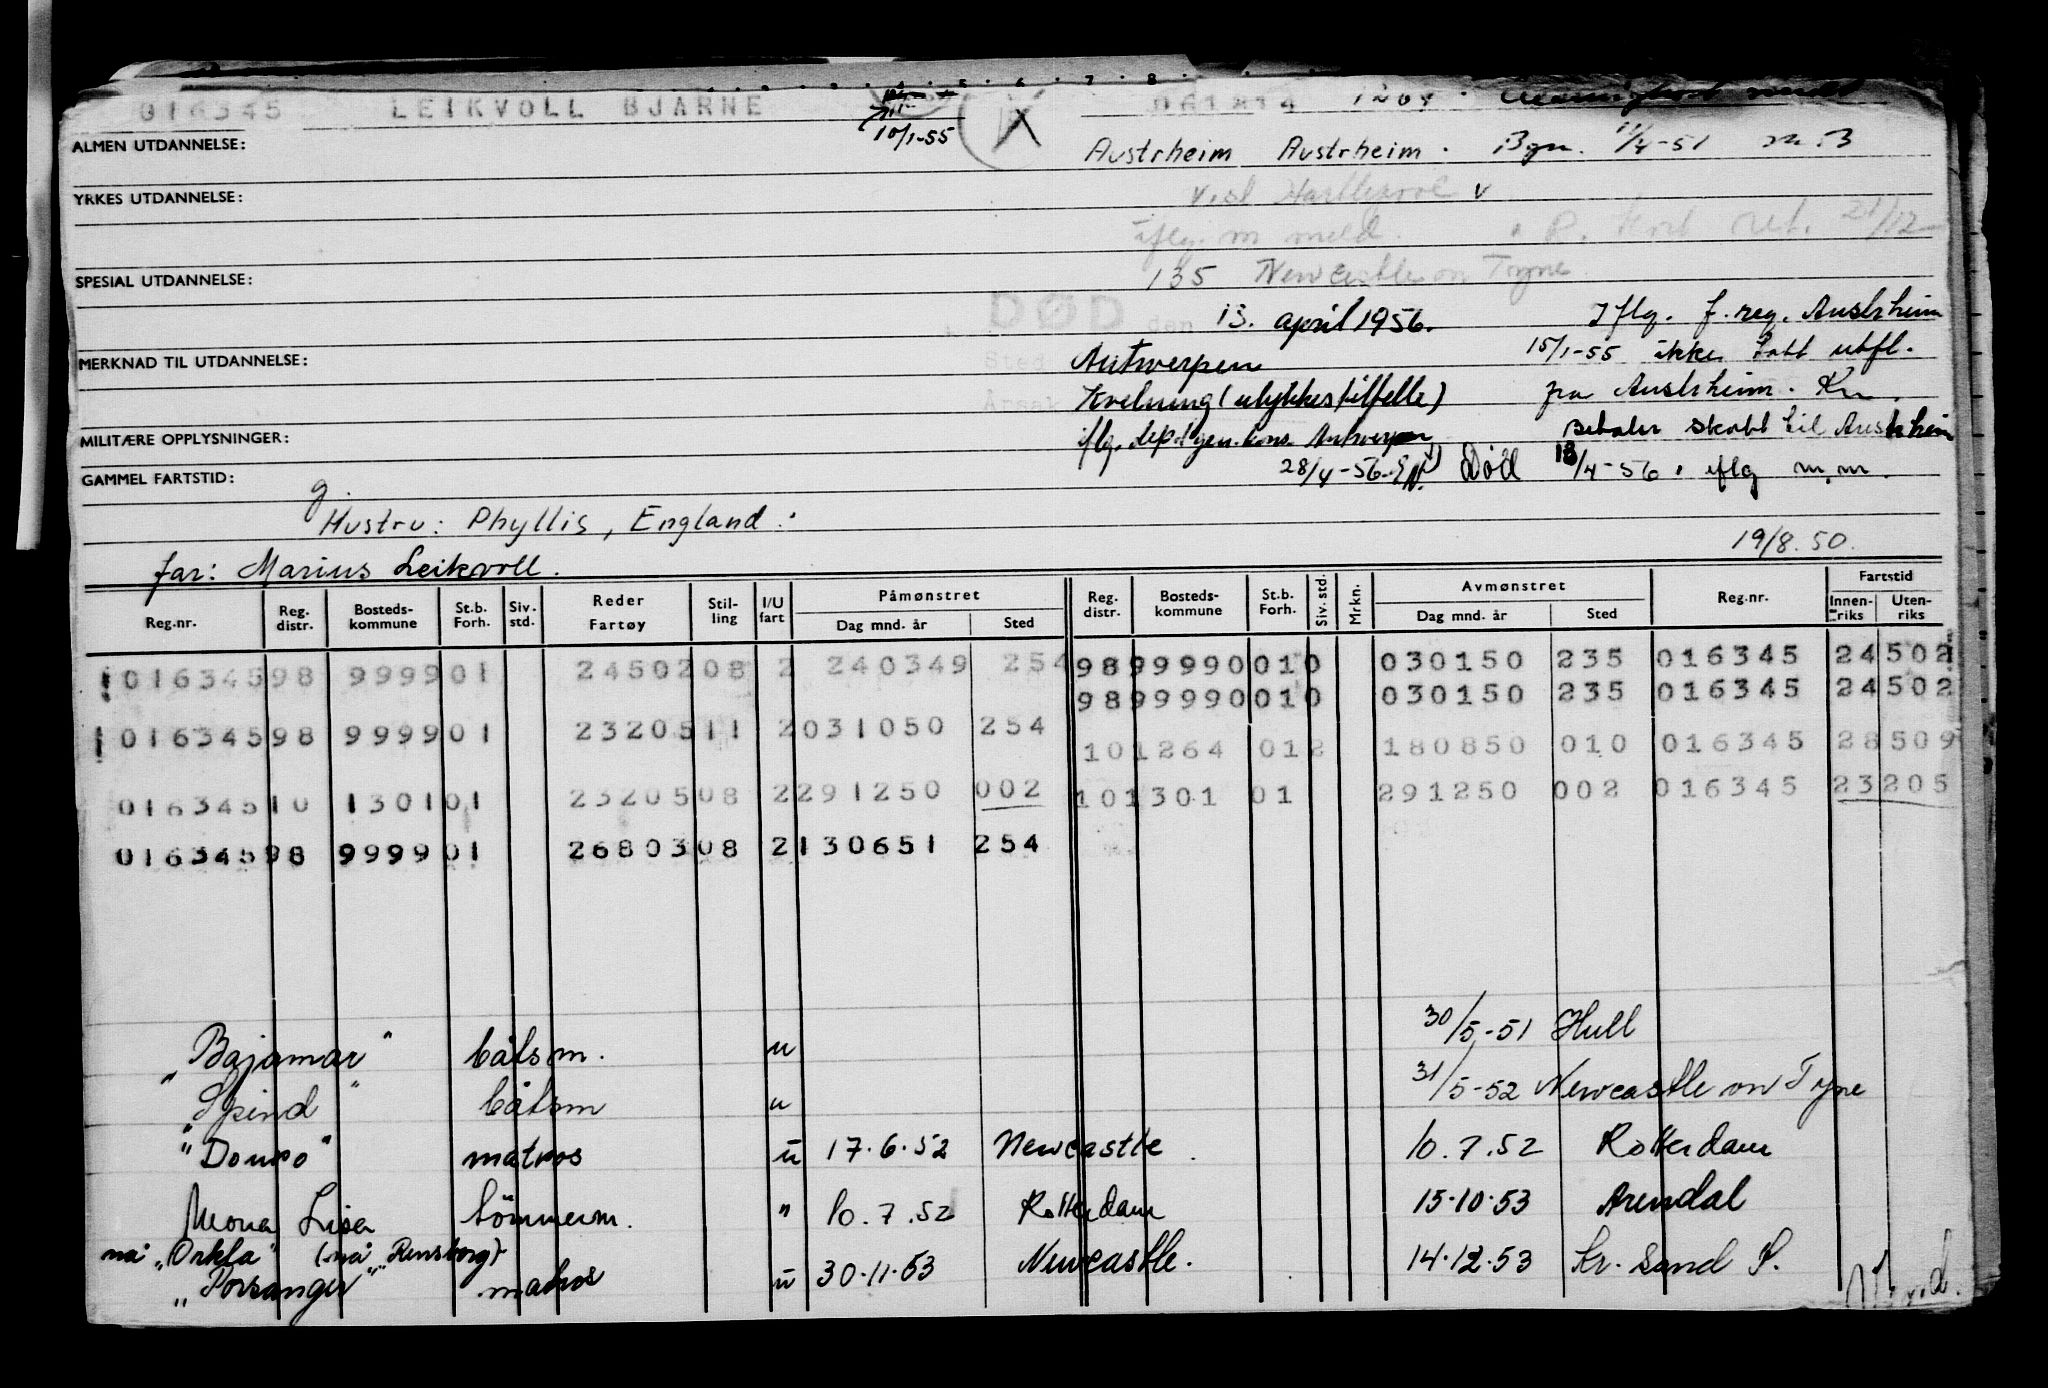 016345 LEIKVOLL BJARNE 041214 1264
10/1-55
ALMEN UTDANNELSE:
Austrheim Austrheim. 11/4-51
YRKES UTDANNELSE:
v.st Hartlepool v
iflg. m meld. 21/12
SPESIAL UTDANNELSE:
135 Newcastle on Tyne
DØD den 13. april 1956.
Iflg. f. reg. Austrheim
MERKNAD TIL UTDANNELSE:
Sted Antwerpen
15/1-55 ikke tatt utfl.
Årsak Kvelning (ulykkestilfelle)
fra Austrheim. Kn.
MILITÆRE OPPLYSNINGER:
iflg. dep. gen. kons. Antwerpen
Betaler skatt til Austrheim
GAMMEL FARTSTID:
28/4-56. Død 13/4-56. iflg m.m.
g.
Hustru: Phyllis, England.
19/8.50.
far: Marius Leikvoll.
Reg.nr. Reg. distr. Bosteds-kommune St.b. Forh. Siv. std. Reder Fartøy Stil-ling I/U fart Påmønstret Dag mnd. år Sted Reg. distr. Bosteds-kommune St.b. Forh. Siv. std. Mrkn. Avmønstret Dag mnd. år Sted Reg.nr. Fartstid Innen-riks Uten-riks
01634598 999901 2450208 2 240349 254 9899990010 030150 235 016345 24502
9899990010 030150 235 016345 24502
01634598 999901 2320511 2031050 254
101264 012 180850 010 016345 28509
01634510 130101 2320508 2291250 002 101301 01 291250 002 016345 23205
01634598 999901 2680308 2130651 254
"Bajamar" båtsm. u 30/5-51 Hull
"Spind" båtsm u 31/5-52 Newcastle on Tyne
"Douro" matros u 17.6.52 Newcastle. 10.7.52 Rotterdam
Mona Lisa tömmerm. " 10.7.52 Rotterdam 15.10.53 Arendal
nå "Orkla" (nå "Rensborg)
"Porsanger" matros u 30.11.53 Newcastle. 14.12.53 Kr. Sand S.